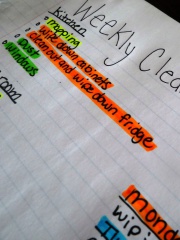 Weekly Clea
Kitchen
mopping
wipe down cabinets
clean out and wipe down fridge
Dust
Windows
oom
Mond
wipi